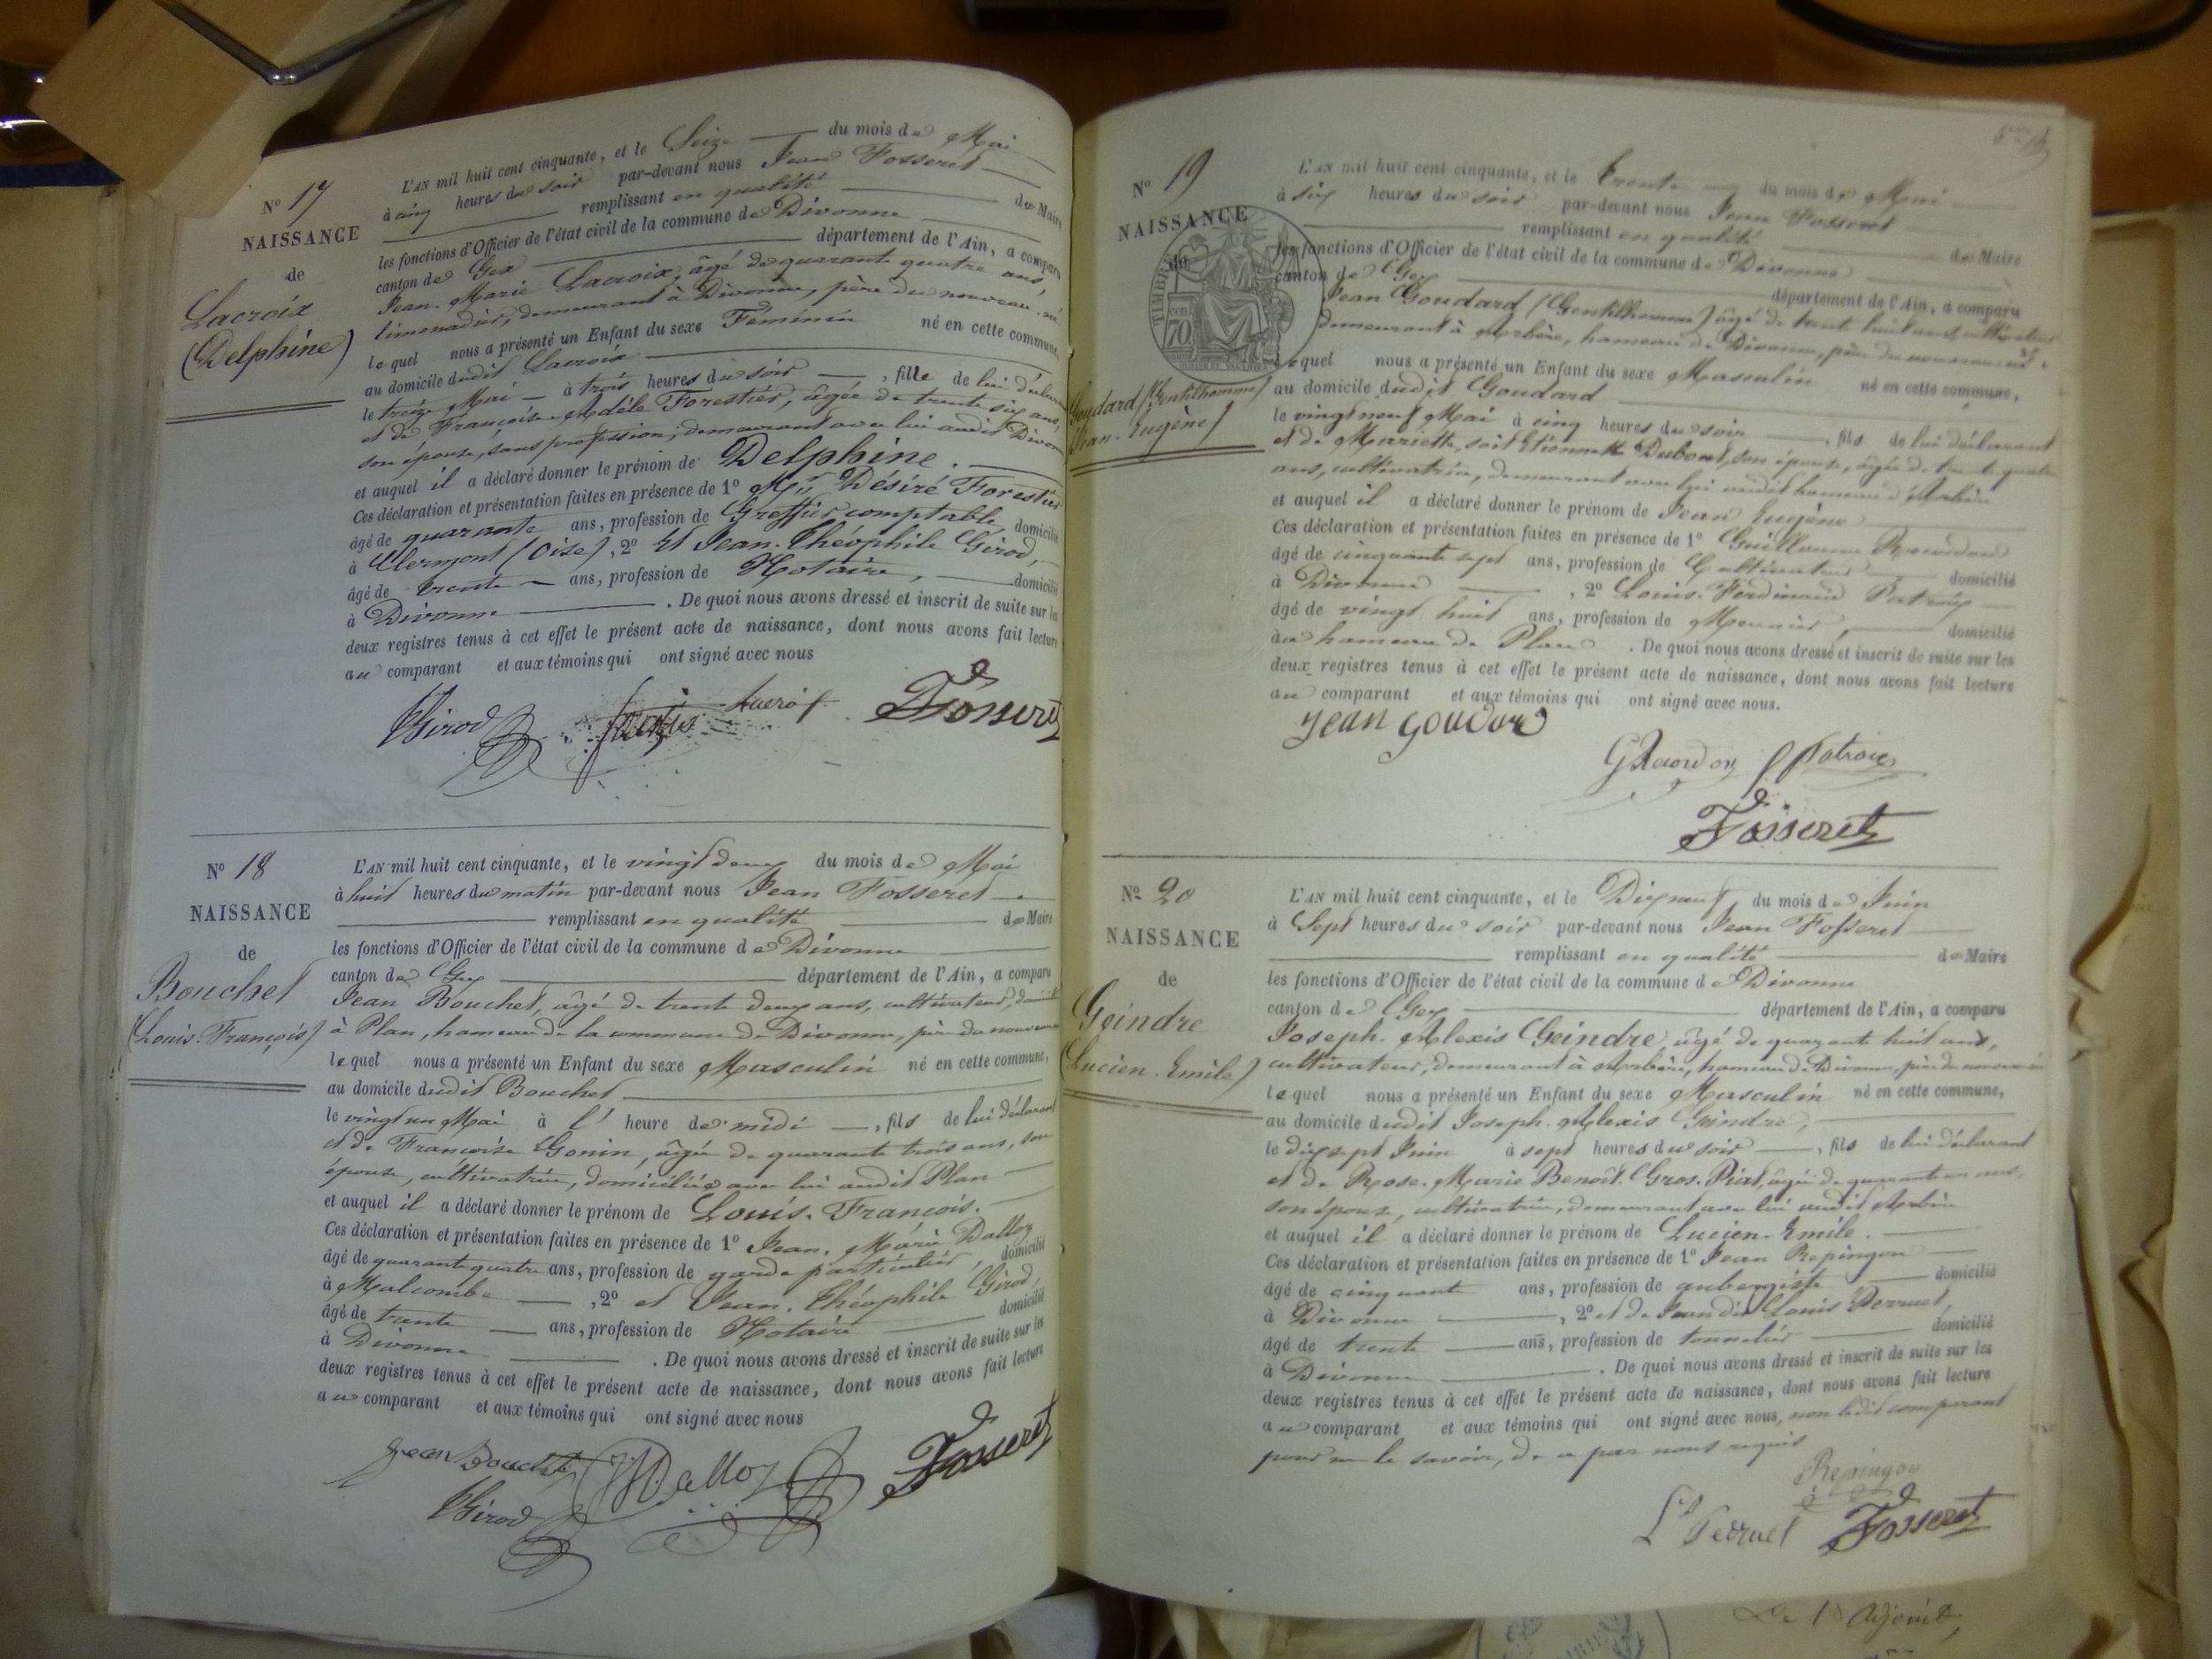 N° 17
NAISSANCE
de
Lacroix
(Delphine)
L'AN mil huit cent cinquante, et le Seize du mois de Mai
à cinq heures du soir par-devant nous Jean Fosseret
remplissant en qualité de Maire
les fonctions d'Officier de l'état civil de la commune de Divonne
canton de Gex département de l'Ain, a comparu
Jean-Marie Lacroix, âgé de quarante quatre ans,
limonadier, demeurant à Divonne, père du nouveau-né
lequel nous a présenté un Enfant du sexe Féminin né en cette commune,
au domicile dudit Lacroix
le treize Mai à trois heures du soir, fille de lui déclarant
et de Françoise-Adèle Forestier, âgée de trente six ans,
son épouse, sans profession, demeurant avec lui audit Divonne
et auquel il a déclaré donner le prénom de Delphine.
Ces déclaration et présentation faites en présence de 1° Désiré Forestier
âgé de quarante ans, profession de Greffier comptable, domicilié
à Clermont (Oise), 2° Et Jean-Théophile Girod,
âgé de trente ans, profession de Notaire, domicilié
à Divonne. De quoi nous avons dressé et inscrit de suite sur les
deux registres tenus à cet effet le présent acte de naissance, dont nous avons fait lecture
au comparant et aux témoins qui ont signé avec nous
Girod Lacroix Fosseret
N° 18
NAISSANCE
de
Bouchet
(Louis-François)
L'AN mil huit cent cinquante, et le vingt deux du mois de Mai
à huit heures du matin par-devant nous Jean Fosseret
remplissant en qualité de Maire
les fonctions d'Officier de l'état civil de la commune de Divonne
canton de Gex département de l'Ain, a comparu
Jean Bouchet, âgé de trente deux ans, cultivateur,
à Plan, hameau de la commune de Divonne, père du nouveau
lequel nous a présenté un Enfant du sexe Masculin né en cette commune,
au domicile dudit Bouchet
le vingt un Mai à l'heure de midi, fils de lui déclarant
et de Françoise Gonin, âgée de quarante trois ans, son
épouse, cultivatrice, domiciliée avec lui audit Plan
et auquel il a déclaré donner le prénom de Louis-François.
Ces déclaration et présentation faites en présence de 1° Jean-Marie Dalloz
âgé de quarante quatre ans, profession de garde particulier, domicilié
à Malcombe, 2° et Jean-Théophile Girod,
âgé de trente ans, profession de Notaire domicilié
à Divonne. De quoi nous avons dressé et inscrit de suite sur les
deux registres tenus à cet effet le présent acte de naissance, dont nous avons fait lecture
au comparant et aux témoins qui ont signé avec nous
Jean Bouchet Dalloz Fosseret
Girod
N° 19
NAISSANCE
de
TIMBRE
70
Goudard (Gentilhomme)
Jean-Eugène)
L'AN mil huit cent cinquante, et le trente du mois de Mai
à six heures du soir par-devant nous Jean Fosseret
remplissant en qualité de Maire
les fonctions d'Officier de l'état civil de la commune de Divonne
canton de Gex département de l'Ain, a comparu
Jean Goudard (Gentilhomme) âgé de trente huit ans, cultivateur
demeurant à Arbère, hameau de Divonne, père du nouveau né.
lequel nous a présenté un Enfant du sexe Masculin né en cette commune,
au domicile dudit Goudard
le vingt neuf Mai à cinq heures du soir, fils de lui déclarant
et de Mariette, soit Etiennette Dubout, son épouse, âgée de trente quatre
ans, cultivatrice, demeurant avec lui audit hameau d'Arbère
et auquel il a déclaré donner le prénom de Jean Eugène
Ces déclaration et présentation faites en présence de 1° Guillaume
âgé de cinquante sept ans, profession de Cultivateur domicilié
à Divonne, 2° Louis-Ferdinand Patroix
âgé de vingt huit ans, profession de Meunier, domicilié
au hameau de Plan. De quoi nous avons dressé et inscrit de suite sur les
deux registres tenus à cet effet le présent acte de naissance, dont nous avons fait lecture
au comparant et aux témoins qui ont signé avec nous.
Jean Goudar
Patroix
Fosseret
N° 20
NAISSANCE
de
Geindre
(Lucien-Emile)
L'AN mil huit cent cinquante, et le Dix neuf du mois de Juin
à Sept heures du soir par-devant nous Jean Fosseret
remplissant en qualité de Maire
les fonctions d'Officier de l'état civil de la commune de Divonne
canton de Gex département de l'Ain, a comparu
Joseph-Alexis Geindre, âgé de quarante huit ans,
cultivateur, demeurant à Arbère, hameau de Divonne, père du nouveau né
lequel nous a présenté un Enfant du sexe Masculin né en cette commune,
au domicile dudit Joseph-Alexis Geindre,
le dix sept Juin à sept heures du soir, fils de lui déclarant
et de Rose-Marie Benoît-Gros-Piat, âgée de quarante un ans,
son épouse, cultivatrice, demeurant avec lui audit Arbère
et auquel il a déclaré donner le prénom de Lucien-Emile.
Ces déclaration et présentation faites en présence de 1° Jean Repingon
âgé de cinquante ans, profession de aubergiste domicilié
à Divonne, 2° et de Jean dit Louis Perruet,
âgé de trente ans, profession de tonnelier domicilié
à Divonne. De quoi nous avons dressé et inscrit de suite sur les
deux registres tenus à cet effet le présent acte de naissance, dont nous avons fait lecture
au comparant et aux témoins qui ont signé avec nous, non ledit comparant
pour ne le savoir, de ce par nous requis
Repingon
Ls Perruet Fosseret